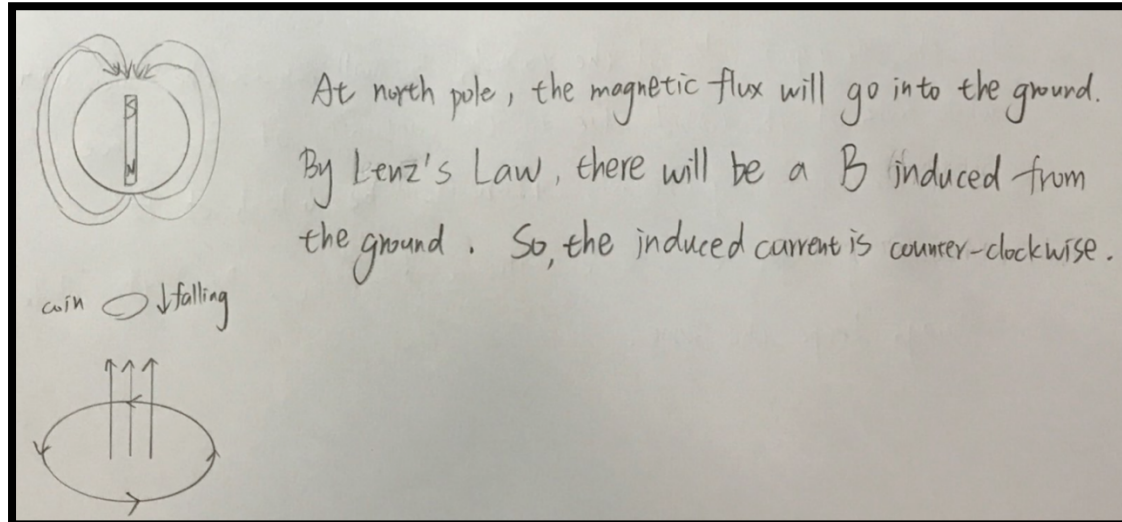 S
N
At north pole, the magnetic flux will go into the ground.
By Lenz's Law, there will be a B induced from
the ground. So, the induced current is counter-clockwise.
coin ↓falling